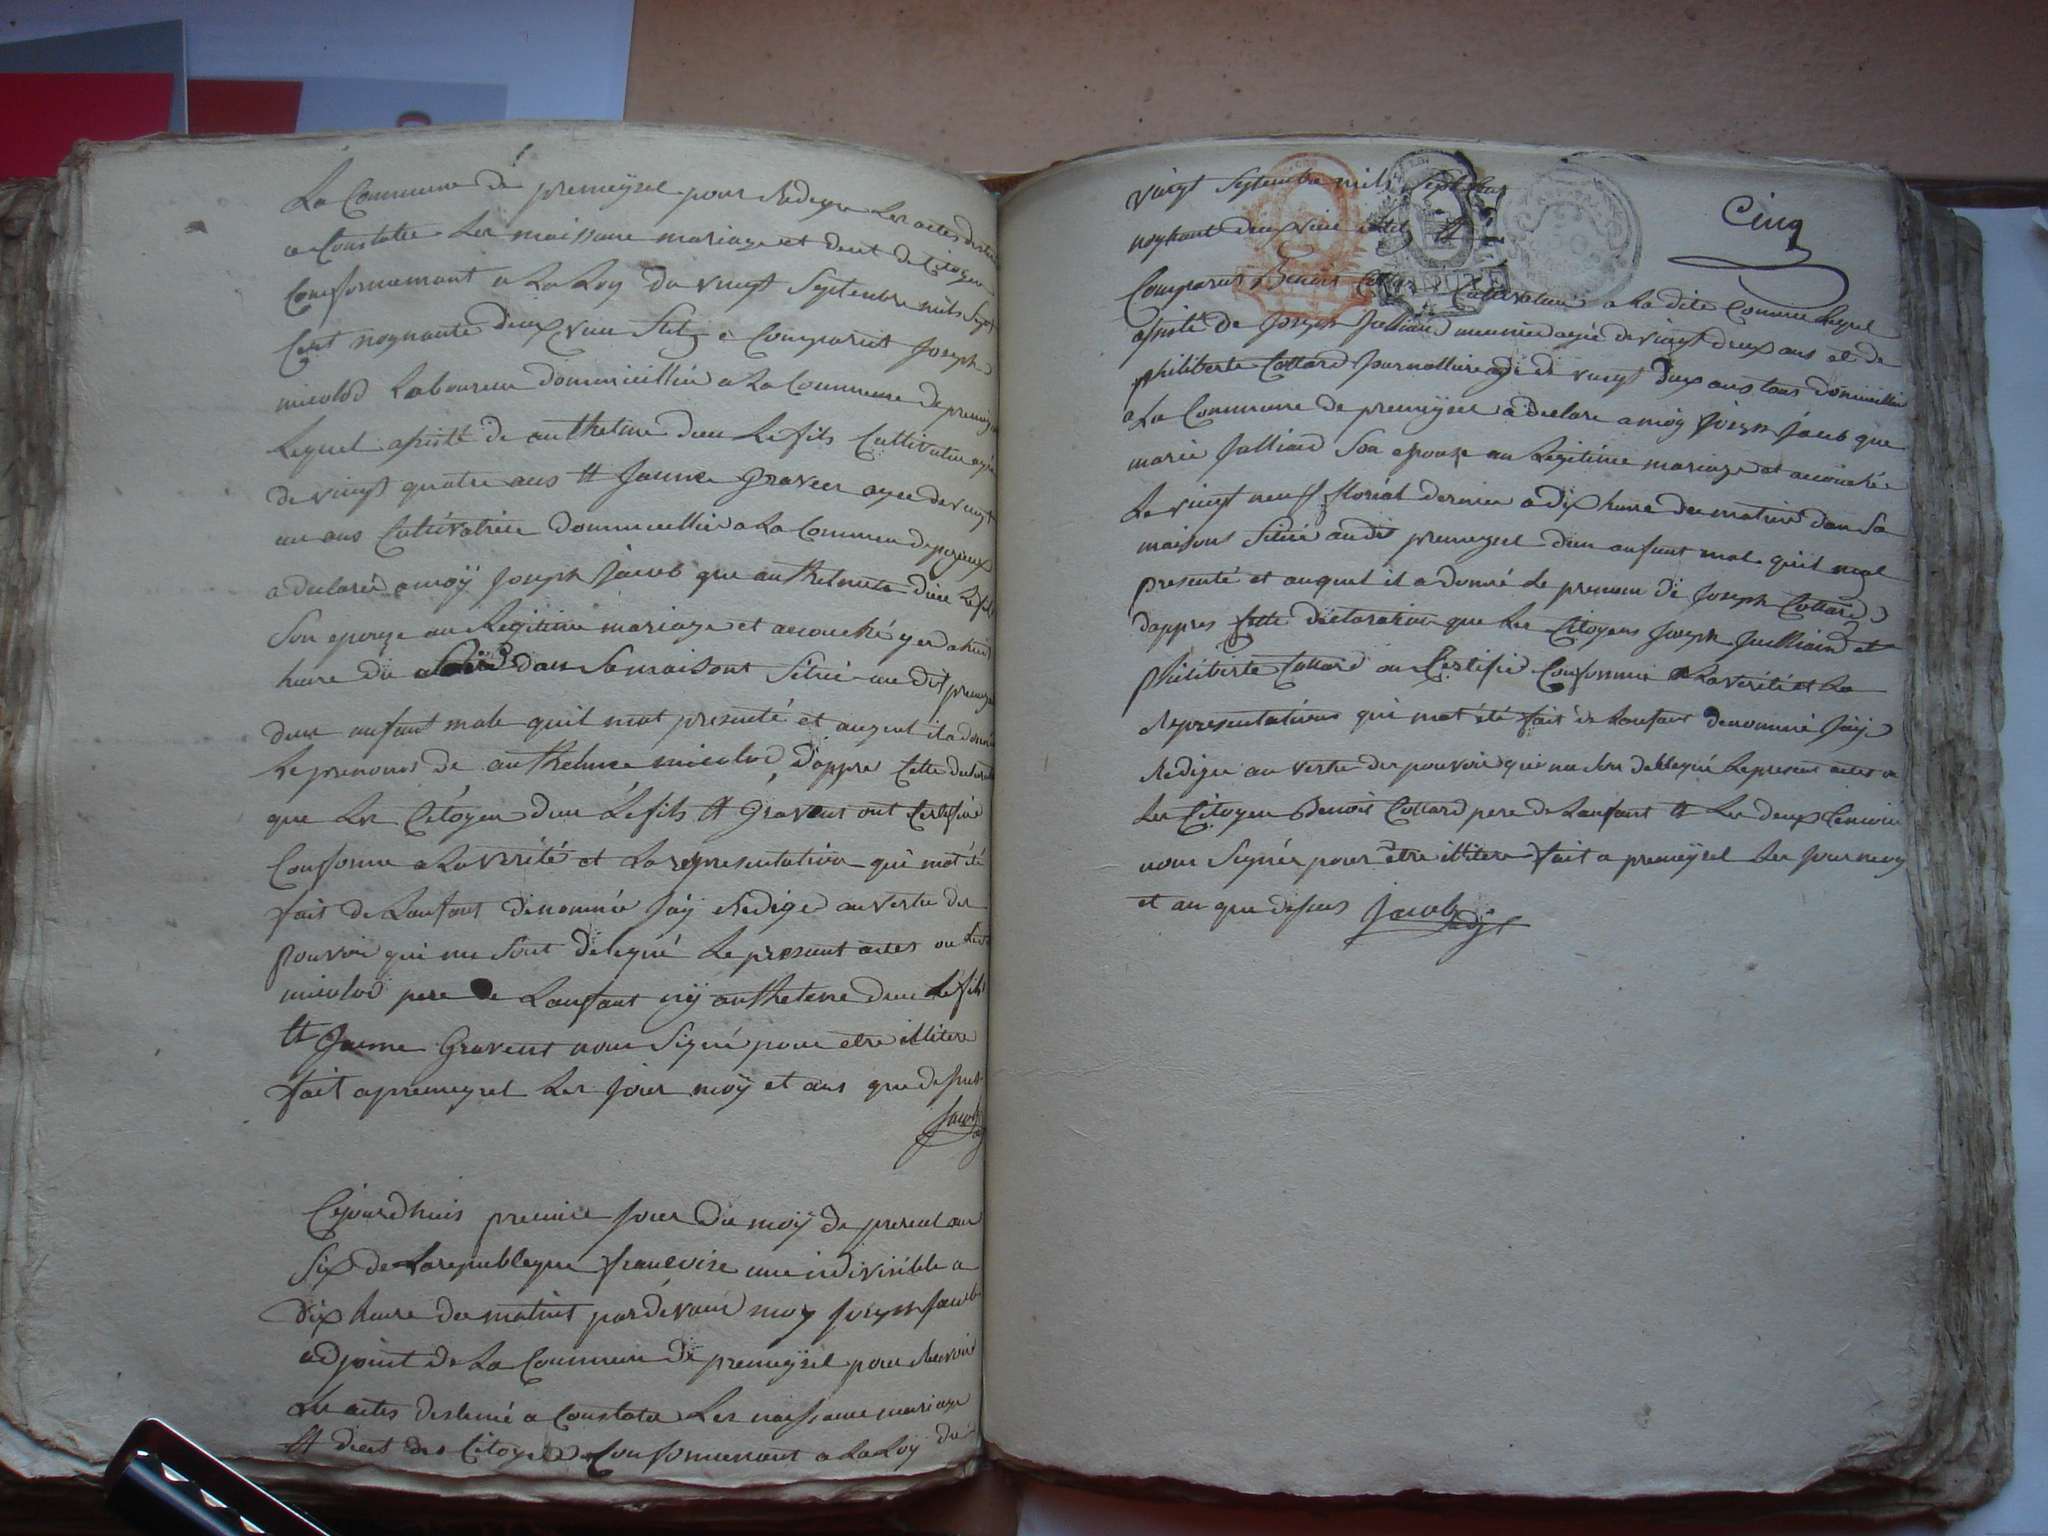 La Commune de premeyzel pour Rediger Les actes destiné
a Constater Les naissance mariage et deces de Citoyen
Conformemant a La Loy du vingt Septembre mils Sept
Cent noynante deux vieu Stil a Comparut Joseph
micolod Laboureur dommicillié a La Commune de premeyzel
Lequel assisté de anthelme dun Le fils Cultivateur agé
de vingt quatre ans et Janne Gravent agee de vingt
un ans Cultivatrice dommicillié a La Commune de
a declaré a moÿ Joseph Jacob que anthelmete dun Le fils
Son epouze an Legitime mariage et acouché yer a huit
heure du soire dans Sa maisont Sitúe au dit premeyzel
dun anfant male quil mat presenté et auquel il a donné
Le prenoms de anthelme micolod, d'appre Cette declaration
que Les Citoyen dun Le fils et Gravent ont Certifié
Conforme a La vérité et La representation qui mat été
fait de Lanfant denommée Jaÿ Redigé an vertu des
pouvoir qui me Sont delegué Le presant actes ou Led
micolod pere de Lanfant nÿ anthelme dun Le fils
et Janne Gravent nont Signé pour etre illitere
fait a premeyzel Les Jour moÿ et ans que dessus
Jacob adj
Cejourdhuis premier Jour du moÿ de prereal an
Six de La republeque francoise une indivisible a
dix heure du matint pardevant moy Joseph Jacob
adjoint de La Commune de premeÿzel pour Recevoir
Les actes destiné a Constater Les naissance mariage
et deces des Citoyen Conformemant a La Loÿ du
Cinq
vingt Septembre mils Sept Cent
noynant deux vieu stil a
Comparus Benoit Collard Cultivateur a La dite Comune Lequel
assisté de Joseph Julliand meunier agée de vingt deux ans et de
philiberte Collard Journalliere agé de vingt deux ans tous domicillié
a La Commune de premeÿzel a declare a moÿ Joseph Jacob que
marie Julliand Son epouze an Legitime mariage et acouchée
Le vingt neuf floréal dernier a dix heure du matint dans Sa
maisons Sitúe au dit premeyzel dun anfant male quil mat
presenté et auquel il a donné Le prenom de Joseph Collard
dappres Cette declaration que Les Citoyens Joseph Julliand et
philiberte Collard on Certifié Conforme a La verité et La
Representations qui mat été fait de Lanfant denommé Jaÿ
Redigee an vertu des pouvoir qui me Son delegué Le presant actes ou
Les Citoyen Benoit Collard pere de Lanfant et Les deux Temoin
nont Signér pour etre illitere fait a premeÿzel Les Jour moy
et an que dessus Jacob adjt